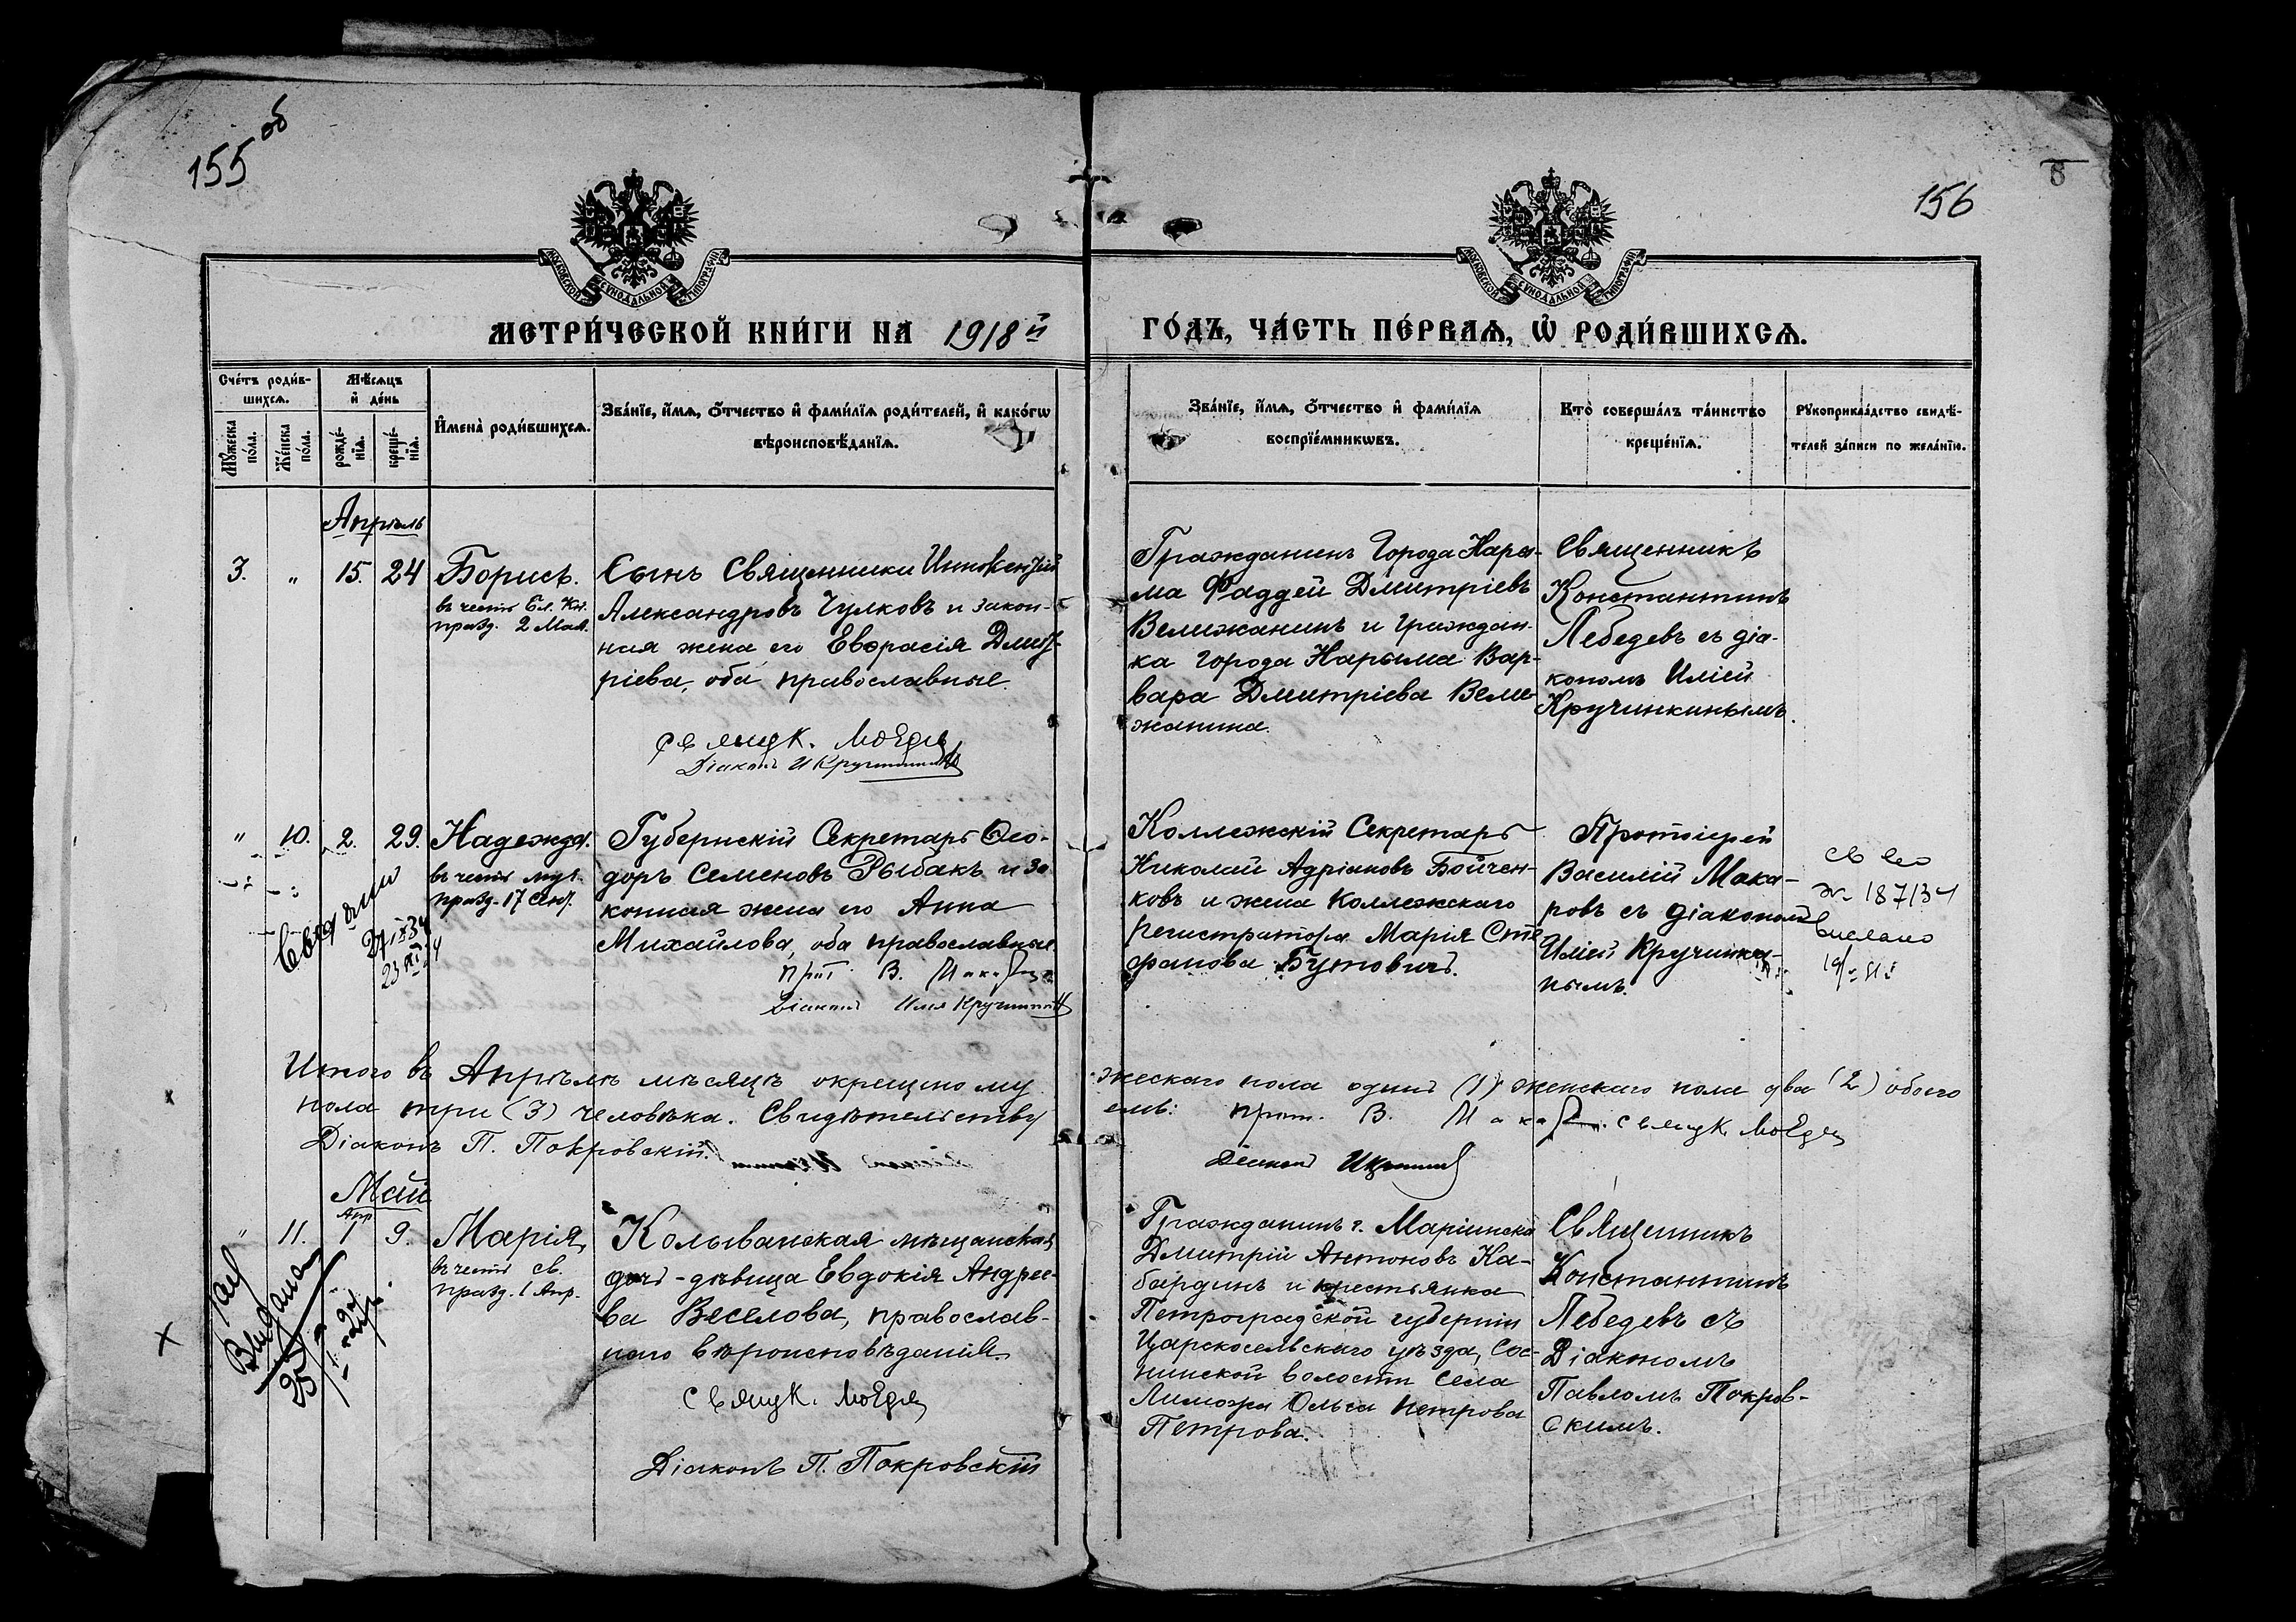 155 об
156
6
МОСКОВСКОЙ СѴНОДАЛЬНОЙ ТИПОГРАФІИ
МОСКОВСКОЙ СѴНОДАЛЬНОЙ ТИПОГРАФІИ
МЕТРИ́ЧЕСКОЙ КНИ́ГИ НА 1918й
ГО́ДЪ, ЧА́СТЬ ПЕ́РВАѦ, Ѡ҆ РОДИ́ВШИХСѦ.
Сче́тъ роди́в-
шихсѧ.
Мꙋ́жеска по́ла.
Же́нска по́ла.
Мѣ́сѧцъ
и҆ де́нь
рожде́-нїѧ.
креще́-нїѧ.
И҆мена̀ роди́вшихсѧ.
Зва́нїе, и҆́мѧ, ѻ҆́тчество и҆ фами́лїѧ роди́телей, и҆ како́гѡ
вѣроисповѣ́данїѧ.
Зва́нїе, и҆́мѧ, ѻ҆́тчество и҆ фами́лїѧ
воспрїе́мникѡвъ.
Кто̀ соверша́лъ та́инство
креще́нїѧ.
Рꙋкоприкла́дство свидѣ́-
телей за́писи по жела́нїю.
Апрѣль
3. „ 15. 24 Борисъ.
въ честь Бл. Кн.
празд. 2 Мая.
Сынъ Священника Иннокентій
Александровъ Чулковъ и закон-
ная жена его Евфрасія Дмит-
ріева, оба православные.
свящк. Лебедевъ
Діаконъ И Кручинкинъ
Гражданинъ Города Нары-
ма Фаддей Дмитріевъ
Велижанинъ и граждан-
ка города Нарыма Вар-
вара Дмитріева Вели-
жанина.
Священникъ
Константинъ
Лебедевъ съ діа-
кономъ Иліей
Кручинкинымъ.
„ 10. 2. 29. Надежда.
въ честь муч.
празд. 17 Сент.
Губернскій Секретарь Ѳео-
доръ Семеновъ Рыбакъ и за-
конная жена его Анна
Михайлова, оба православные.
Прот. В. Макаровъ
Діаконъ Илія Кручинкинъ
Коллежскій Секретарь
Николай Адріановъ Бойчен-
ковъ и жена Коллежскаго
регистратора Марія Сте-
фанова Бутовичъ.
Протоіерей
Василій Мака-
ровъ съ діакономъ
Иліей Кручинки-
нымъ.
187134
выслано
Итого въ Апрѣлѣ мѣсяцѣ окрещено му
жескаго пола одинъ (1) женскаго пола два (2) обоего
пола три (3) человѣка. Свидѣтельству
емъ: Прот. В. Макаровъ. свящк. Лебедевъ
Діаконъ П. Покровскій.
Діаконъ И Кручинкинъ
Май
Апр
„ 11. 1 9. Марія
въ честь св.
празд. 1 Апр.
Выдана
25
Колыванская мѣщанская
дочь-дѣвица Евдокія Андрее-
ва Веселова, православ-
наго вѣроисповѣданія.
свящк. Лебедевъ
Діаконъ П. Покровскій
Гражданинъ г. Маріинска
Дмитрій Антоновъ Ка-
бардинъ и крестьянка
Петроградской губерніи
Царскосельскаго уѣзда, Сос-
нинской волости села
Ольга Петрова
Петрова.
Священникъ
Константинъ
Лебедевъ съ
Діакономъ
Павломъ Покров-
скимъ.